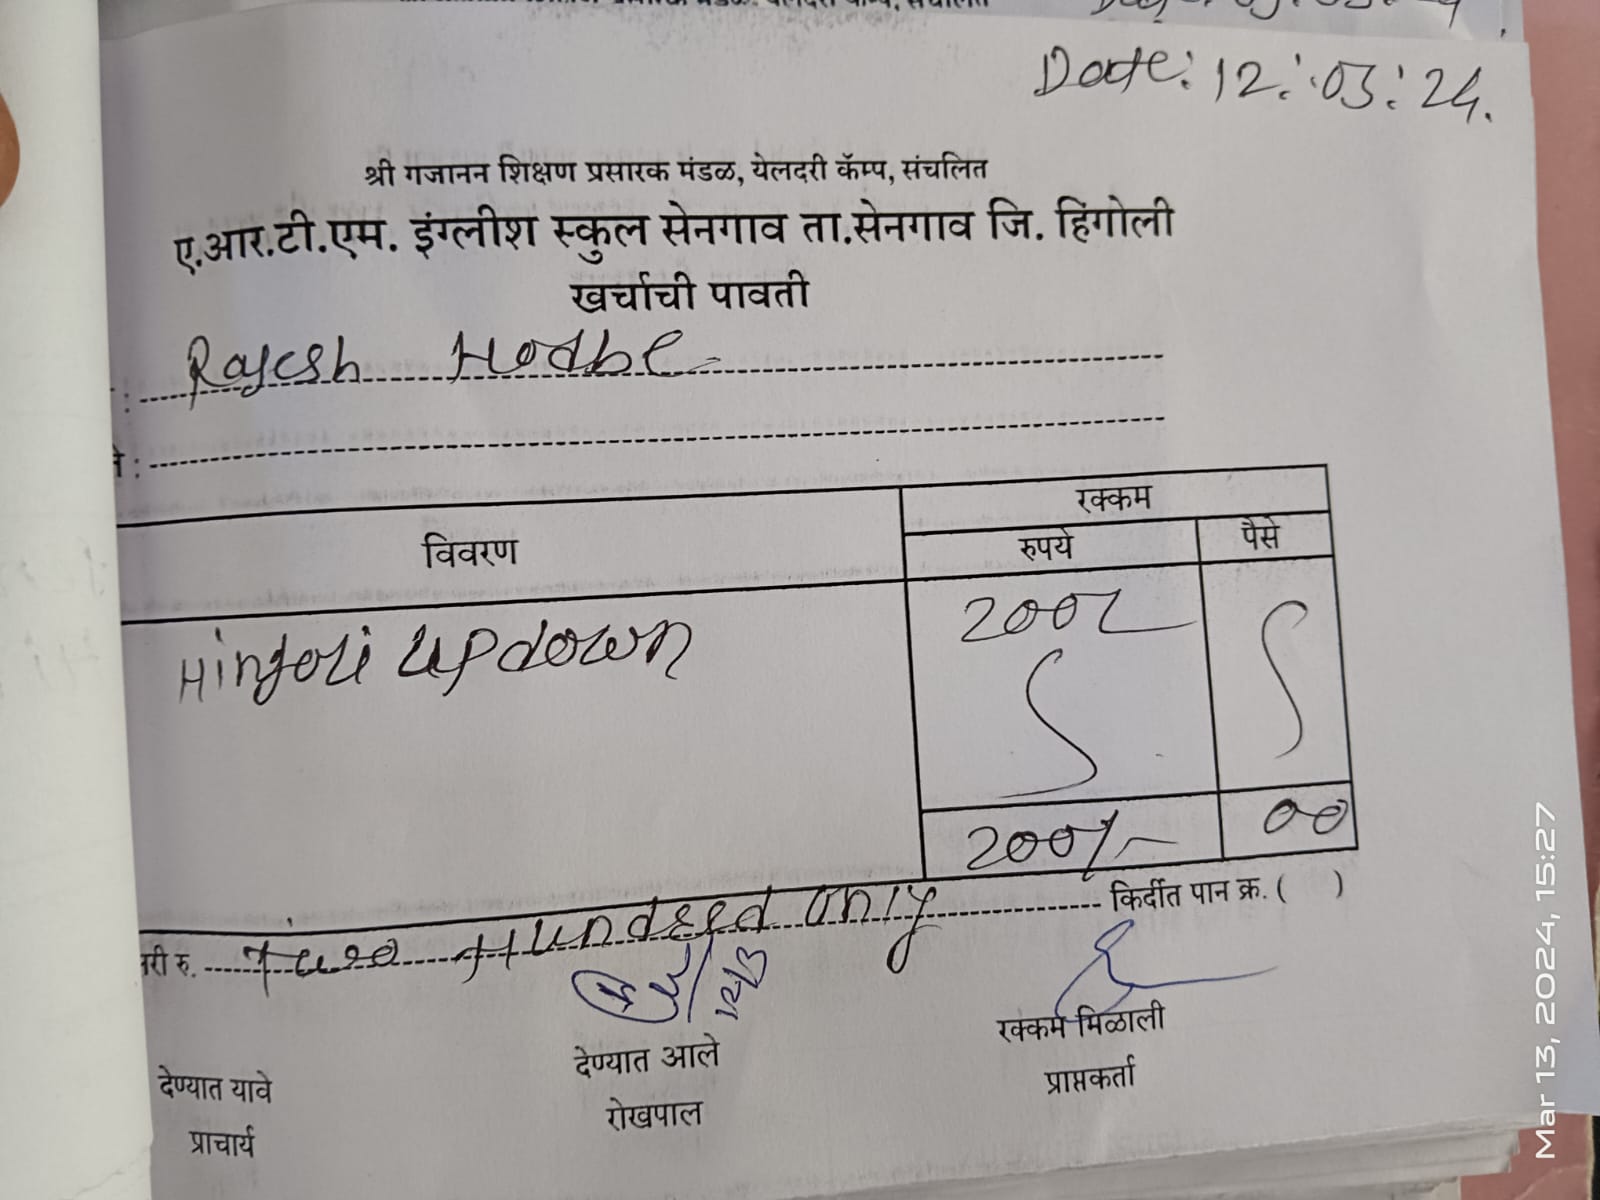 Date: 12:03:24.
श्री गजानन शिक्षण प्रसारक मंडळ, येलदरी कॅम्प, संचलित
ए.आर.टी.एम. इंग्लीश स्कुल सेनगाव ता.सेनगाव जि. हिंगोली
खर्चाची पावती
: Rajesh Hodbe
:
विवरण रक्कम
रुपये पैसे
Hingoli up down 200/-
200/- 00
री रु. Two Hundred only किर्दीत पान क्र. ( )
देण्यात यावे देण्यात आले रक्कम मिळाली
प्राचार्य रोखपाल प्राप्तकर्ता
Mar 13, 2024, 15:27